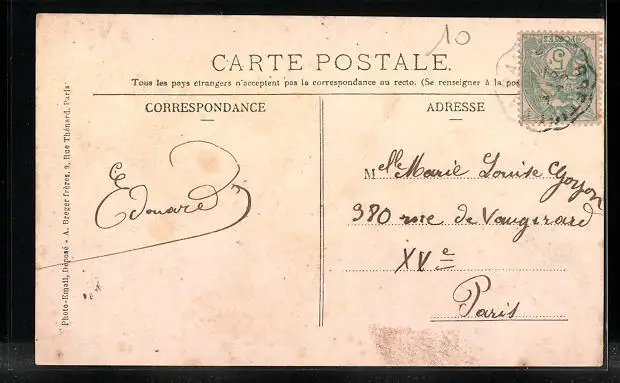 10
CARTE POSTALE.
Tous les pays étrangers n'acceptent pas la correspondance au recto. (Se renseigner à la pos
CORRESPONDANCE
ADRESSE
Edouard
Mlle Marie Louise Goyon
380 rue de Vaugirard
XVe
Paris
Photo-Email, Déposé - A. Breger frères, 9, Rue Thénard, Paris
5